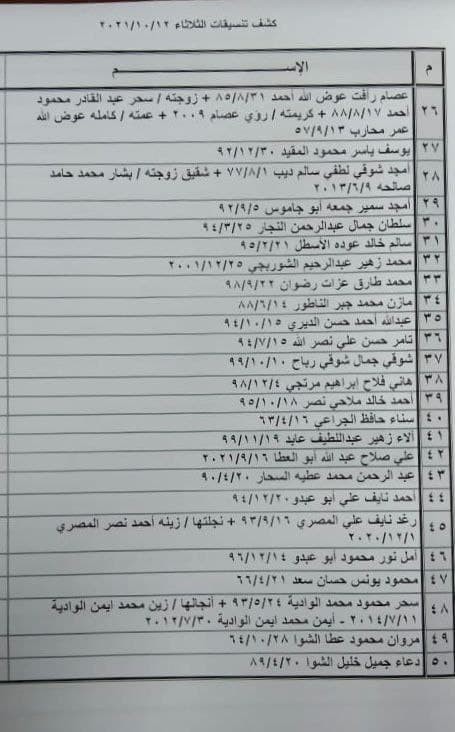 كشف تنسيقات الثلاثاء ٢٠٢١/١٠/١٢
م الإســــم
٢٦ عصام رأفت عوض الله أحمد ٨٥/٨/٣١ + زوجته / سحر عبد القادر محمود
أحمد ٨٨/٨/١٧ + كريمته / رؤي عصام ٢٠٠٩ + عمته / كامله عوض الله
عمر محارب ٥٧/٩/١٣
٢٧ يوسف ياسر محمود المقيد ٩٢/١٢/٣٠
٢٨ أمجد شوقي لطفي سالم ديب ٧٧/٨/١ + شقيق زوجته / بشار محمد حامد
صالحه ٢٠١٣/٦/٩
٢٩ أمجد سمير جمعه أبو جاموس ٩٢/٩/٥
٣٠ سلطان جمال عبدالرحمن النجار ٩٤/٣/٢٥
٣١ سالم خالد عوده الأسطل ٩٥/٢/٢١
٣٢ محمد زهير عبدالرحيم الشوربجي ٢٠٠١/١٢/٢٥
٣٣ محمد طارق عزات رضوان ٩٨/٩/٢٢
٣٤ مازن محمد جبر الناطور ٨٨/٦/١٤
٣٥ عبدالله أحمد حسن الديري ٩٤/١٠/١٥
٣٦ تامر حسن علي نصر الله ٩٤/٧/١٥
٣٧ شوقي جمال شوقي رباح ٩٩/١٠/١٠
٣٨ هاني فلاح إبراهيم مرتجي ٩٨/١٢/٤
٣٩ أحمد خالد ملاحي نصر ٩٥/١٠/١٨
٤٠ سناء حافظ الجراعي ٦٣/٤/١٦
٤١ آلاء زهير عبداللطيف عابد ٩٩/١١/١٩
٤٢ علي صلاح عبد الله أبو العطا ٢٠٢١/٩/١٦
٤٣ عبد الرحمن محمد عطيه السحار ٩٠/٤/٢٠
٤٤ أحمد نايف علي أبو عبدو ٩٤/١٢/٢٠
٤٥ رغد نايف علي المصري ٩٣/٩/١٦ + نجلتها / زينه أحمد نصر المصري
٢٠٢٠/١٢/١
٤٦ أمل نور محمود أبو عبدو ٩٦/١٢/١٤
٤٧ محمود يونس حسان سعد ٦٦/٤/٢١
٤٨ سحر محمود محمد الوادية ٩٣/٥/٢٤ + أنجالها / زين محمد ايمن الوادية
٢٠١٤/٧/١١ - أيمن محمد ايمن الوادية ٢٠١٢/٧/٣٠
٤٩ مروان محمود عطا الشوا ٦٤/١٠/٢٨
٥٠ دعاء جميل خليل الشوا ٨٩/٤/٢٠